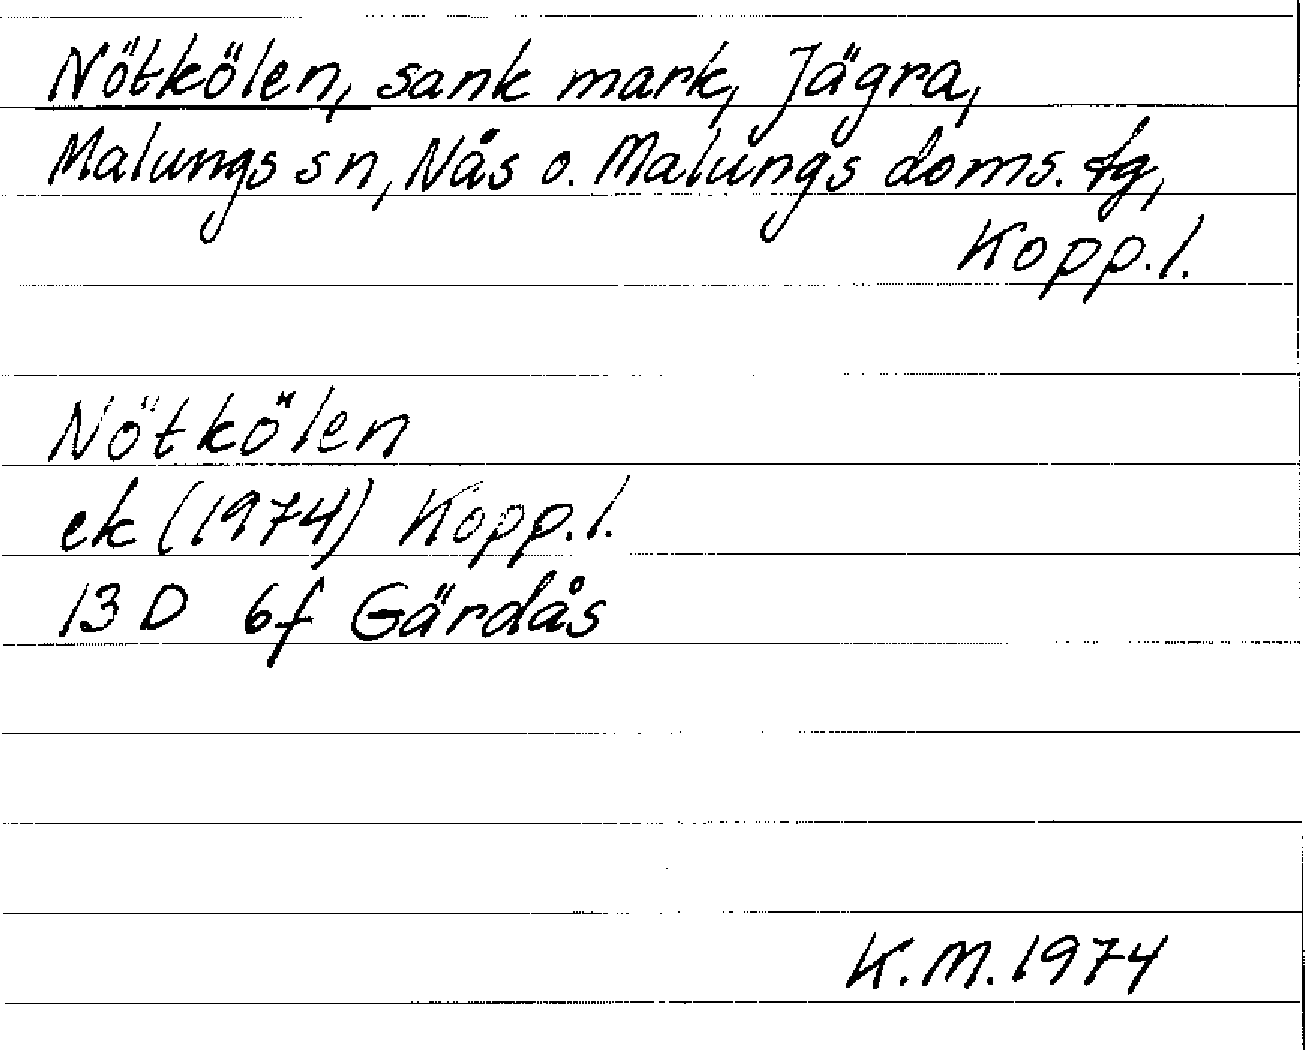 Nötkölen, sank mark, Jägra,
Malungs sn, Nås o. Malungs doms. tg,
Kopp.l.
Nötkölen
ek (1974) Kopp.l.
13 D 6f Gärdås
K.M. 1974